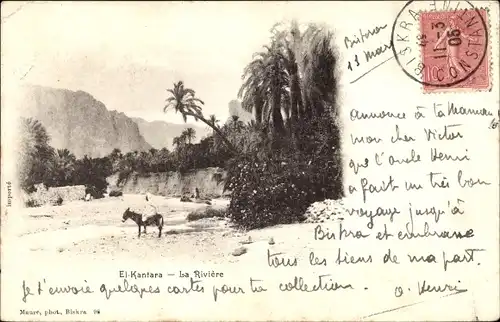 Biskra
13 mars
BISKRA
CONSTANTINE
11 -3
06
10
Importé
annonce à ta Maman
mon cher Victor
que l'oncle Henri
a fait un très bon
voyage jusqu'à
Biskra et embrasse
tous les siens de ma part.
O. Henri
El-Kantara - La Rivière
Je t'envoie quelques cartes pour ta collection.
Maure, phot., Biskra